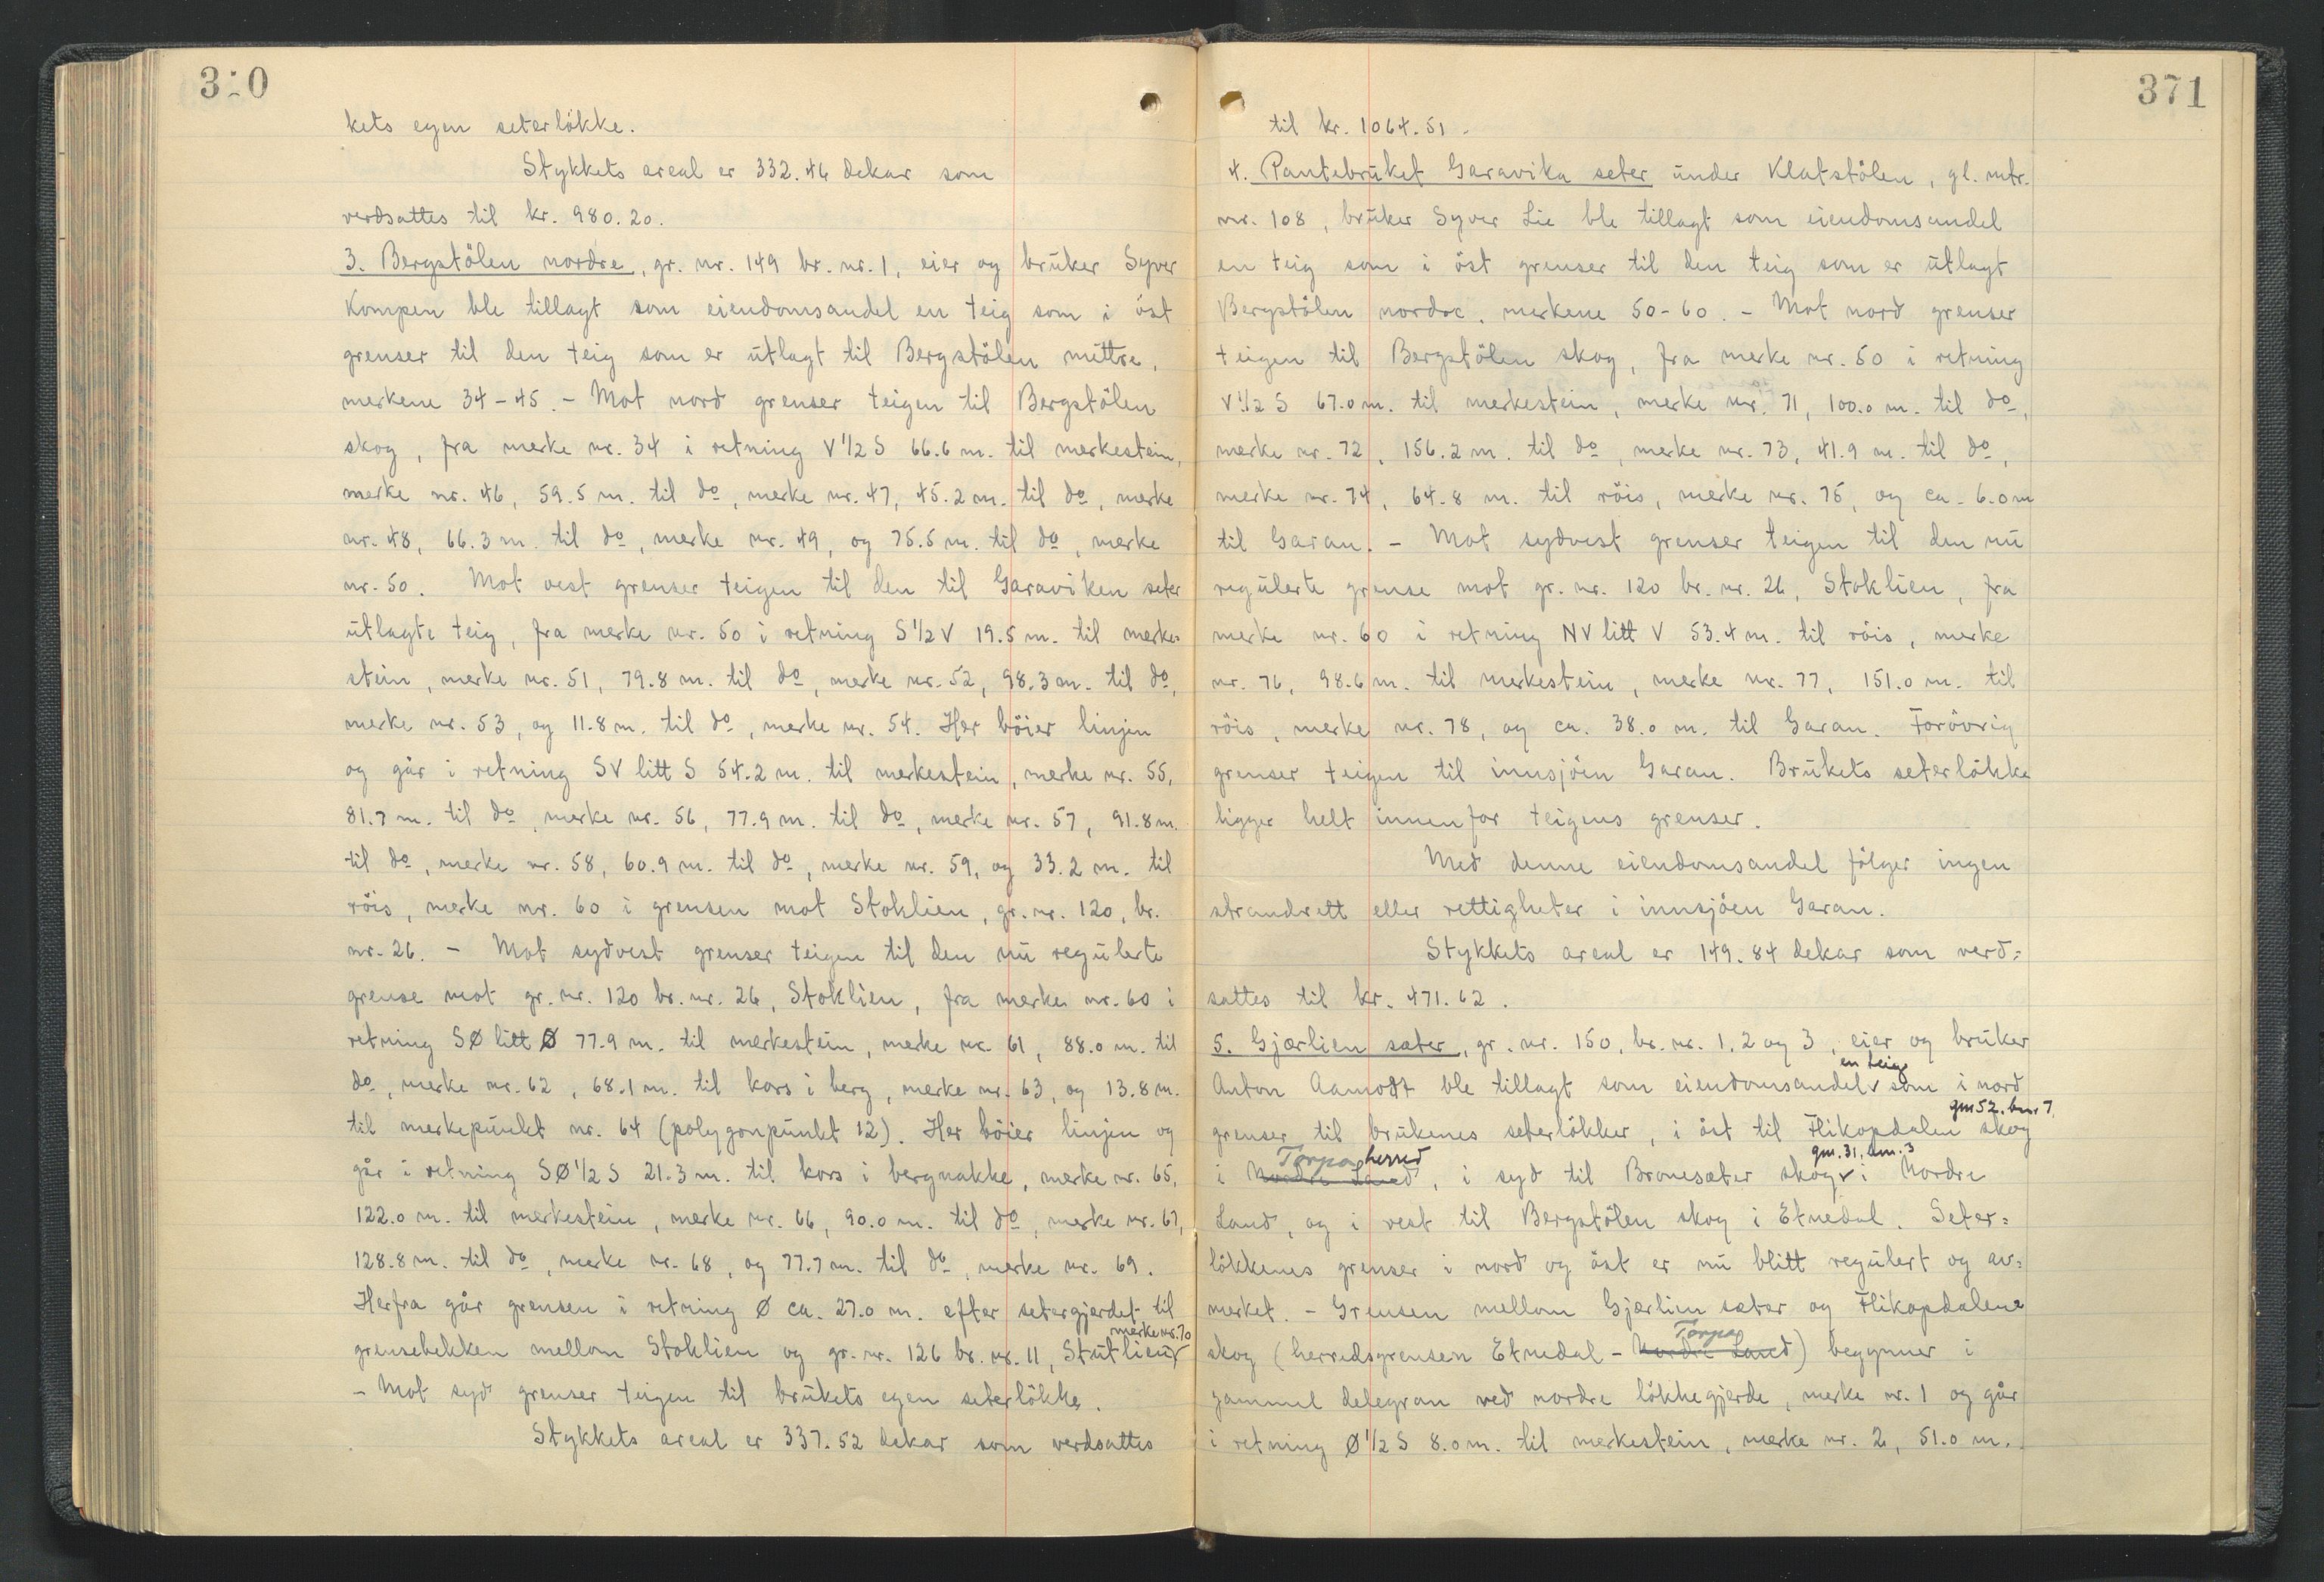 370
kets egen seterlökke.
Stykkets areal er 332.46 dekar som
verdsattes til kr. 980.20.
3. Bergstölen nordre, gr. nr. 149 br. nr. 1, eier og brüker Syver
Kompen ble tillagt som eiendomsandel en teig som i öst
grenser til den teig som er ütlagt til Bergstölen mittre,
merkene 34-45. - Mot nord grenser teigen til Bergstölen
skog, fra merke nr. 34 i retning V 1/2 S 66.6 m. til merkestein,
merke nr. 46, 59.5 m. til do, merke nr. 47, 45.2 m. til do, merke
nr. 48, 66.3 m. til do, merke nr. 49, og 75.5 m. til do, merke
nr. 50. Mot vest grenser teigen til den til Garaviken seter
ütlagte teig, fra merke nr. 50 i retning S 1/2 V 19.5 m. til merke=
stein, merke nr. 51, 79.8 m. til do, merke nr. 52, 98.3 m. til do,
merke nr. 53, og 11.8 m. til do, merke nr. 54. Her böier linjen
og går i retning SV litt S 54.2 m. til merkestein, merke nr. 55,
81.7 m. til do, merke nr. 56, 77.9 m. til do, merke nr. 57, 91.8 m.
til do, merke nr. 58, 60.9 m. til do, merke nr. 59, og 33.2 m. til
röis, merke nr. 60 i grensen mot Stoklien, gr. nr. 120, br.
nr. 26. - Mot sydvest grenser teigen til den nü regülerte
grense mot gr. nr. 120 br. nr. 26, Stoklien, fra merke nr. 60 i
retning SØ litt Ø 77.9 m. til merkestein, merke nr. 61, 88.0 m. til
do, merke nr. 62, 68.1 m. til kors i berg, merke nr. 63, og 13.8 m.
til merkepünkt nr. 64 (polygonpünkt 12). Her böier linjen og
går i retning SØ 1/2 S 21.3 m. til kors i bergnakke, merke nr. 65,
122.0 m. til merkestein, merke nr. 66, 90.0 m. til do, merke nr. 67,
128.8 m. til do, merke nr. 68, og 77.7 m. til do, merke nr. 69.
Herfra går grensen i retning Ø ca. 27.0 m. efter setergjerdet til
merke nr. 70
grensebekken mellom Stoklien og gr. nr. 126 br. nr. 11, Stütlien
- Mot syd grenser teigen til brükets egen seterlökke.
Stykkets areal er 337.52 dekar som verdsattes
371
til kr. 1064.51.
4. Pantebrüket Garavika seter ünder Klatstölen, gl. mtr.
nr. 108, brüker Syver Lie ble tillagt som eiendomsandel
en teig som i öst grenser til den teig som er ütlagt
Bergstölen nordre, merkene 50-60. - Mot nord grenser
teigen til Bergstölen skog, fra merke nr. 50 i retning
V 1/2 S 67.0 m. til merkestein, merke nr. 71, 100.0 m. til do,
merke nr. 72, 156.2 m. til do, merke nr. 73, 41.9 m. til do,
merke nr. 74, 64.8 m. til röis, merke nr. 75, og ca. 6.0 m
til Garan. - Mot sydvest grenser teigen til den nü
regülerte grense mot gr. nr. 120 br. nr. 26, Stoklien, fra
merke nr. 60 i retning NV litt V 53.4 m. til röis, merke
nr. 76, 98.6 m. til merkestein, merke nr. 77, 151.0 m. til
röis, merke nr. 78, og ca. 38.0 m. til Garan. Forövrig
grenser teigen til innsjöen Garan. Brükets seterlökke
ligger helt innenfor teigens grenser.
Med denne eiendomsandel fölger ingen
strandrett eller rettigheter i innsjöen Garan.
Stykkets areal er 149.84 dekar som verd=
sattes til kr. 471.62.
5. Gjærlien sæter, gr. nr. 150, br. nr. 1, 2 og 3, eier og brüker
en teig
Anton Aamodt ble tillagt som eiendomsandel som i nord
gnr 52. bnr 7.
grenser til brükenes seterlökker, i öst til Flikopdalen skog
Torpa herred gnr. 31, bnr. 3
i Nordre Land, i syd til Bronesæter skog i Nordre
Land, og i vest til Bergstölen skog i Etnedal. Seter=
lökkenes grenser i nord og öst er nü blitt regülert og av=
merket. - Grensen mellom Gjærlien sæter og Flikopdalens
Torpa
skog (herredsgrensen Etnedal - Nordre Land) begynner i
gammel delegran ved nordre lökkegjerde, merke nr. 1 og går
i retning Ø 1/2 S 8.0 m. til merkestein, merke nr. 2, 51.0 m.